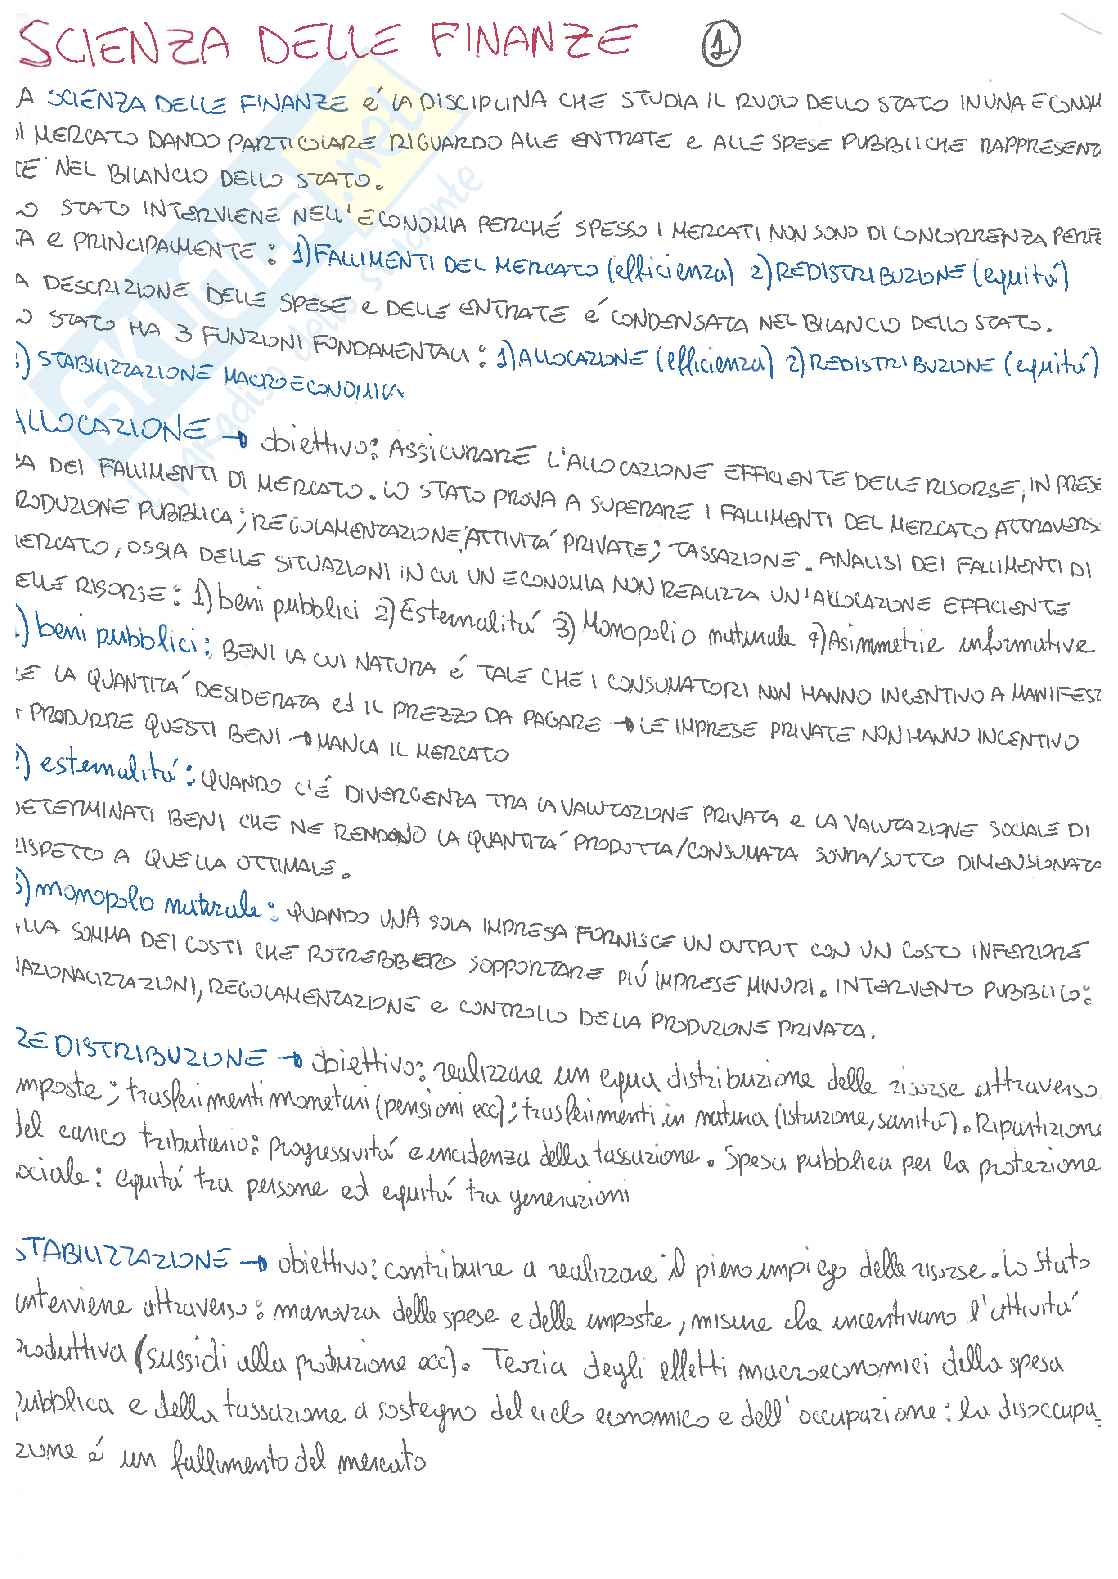 SCIENZA DELLE FINANZE 1
A SCIENZA DELLE FINANZE é LA DISCIPLINA CHE STUDIA IL RUOLO DELLO STATO IN UNA ECONOM
I MERCATO DANDO PARTICOLARE RIGUARDO ALLE ENTRATE e ALLE SPESE PUBBLICHE RAPPRESENT
TE NEL BILANCIO DELLO STATO.
O STATO INTERVIENE NELL'ECONOMIA PERCHÉ SPESSO I MERCATI NON SONO DI CONCORRENZA PERFE
TA e PRINCIPALMENTE: 1) FALLIMENTI DEL MERCATO (efficienza) 2) REDISTRIBUZIONE (equitá)
A DESCRIZIONE DELLE SPESE e DELLE ENTRATE é CONDENSATA NEL BILANCIO DELLO STATO.
O STATO HA 3 FUNZIONI FONDAMENTALI: 1) ALLOCAZIONE (efficienza) 2) REDISTRIBUZIONE (equitá)
3) STABILIZZAZIONE MACROECONOMICA
ALLOCAZIONE → obiettivo: ASSICURARE L'ALLOCAZIONE EFFICIENTE DELLE RISORSE, IN PRESE
ZA DEI FALLIMENTI DI MERCATO. LO STATO PROVA A SUPERARE I FALLIMENTI DEL MERCATO ATTRAVERS
RODUZIONE PUBBLICA; REGOLAMENTAZIONE; ATTIVITÁ PRIVATE; TASSAZIONE. ANALISI DEI FALLIMENTI DI
MERCATO, OSSIA DELLE SITUAZIONI IN CUI UN ECONOMIA NON REALIZZA UN'ALLOCAZIONE EFFICIENTE
ELLE RISORSE: 1) beni pubblici 2) Esternalitá 3) Monopolio naturale 4) Asimmetrie informative
1) beni pubblici: BENI LA CUI NATURA é TALE CHE I CONSUMATORI NON HANNO INCENTIVO A MANIFEST
RE LA QUANTITÁ DESIDERATA ed IL PREZZO DA PAGARE → LE IMPRESE PRIVATE NON HANNO INCENTIVO
A PRODURRE QUESTI BENI → MANCA IL MERCATO
2) esternalitá: QUANDO C'É DIVERGENZA TRA LA VALUTAZIONE PRIVATA e LA VALUTAZIONE SOCIALE DI
DETERMINATI BENI CHE NE RENDONO LA QUANTITÁ PRODOTTA/CONSUMATA SOVRA/SOTTO DIMENSIONATA
RISPETTO A QUELLA OTTIMALE.
3) monopolo naturale: QUANDO UNA SOLA IMPRESA FORNISCE UN OUTPUT CON UN COSTO INFERIORE
ALLA SOMMA DEI COSTI CHE POTREBBERO SOPPORTARE PIÚ IMPRESE MINORI. INTERVENTO PUBBLICO:
NAZIONALIZZAZIONI, REGOLAMENTAZIONE e CONTROLLO DELLA PRODUZIONE PRIVATA.
REDISTRIBUZIONE → obiettivo: realizzare un equa distribuzione delle risorse attraverso
imposte; trasferimenti monetari (pensioni ecc); trasferimenti in natura (istruzione, sanitá). Ripartizione
del carico tributario: progressivitá e incidenza della tassazione. Spesa pubblica per la protezione
sociale: equitá tra persone ed equitá tra generazioni
STABILIZZAZIONE → obiettivo: contribuire a realizzare il pieno impiego delle risorse. Lo Stato
interviene attraverso: manovra delle spese e delle imposte, misure che incentivano l'attivitá
produttiva (sussidi alla produzione ecc). Teoria degli effetti macroeconomici della spesa
pubblica e della tassazione a sostegno del ciclo economico e dell'occupazione: la disoccupa_
zione é un fallimento del mercato
SKUOLA.net
il paradiso dello studente